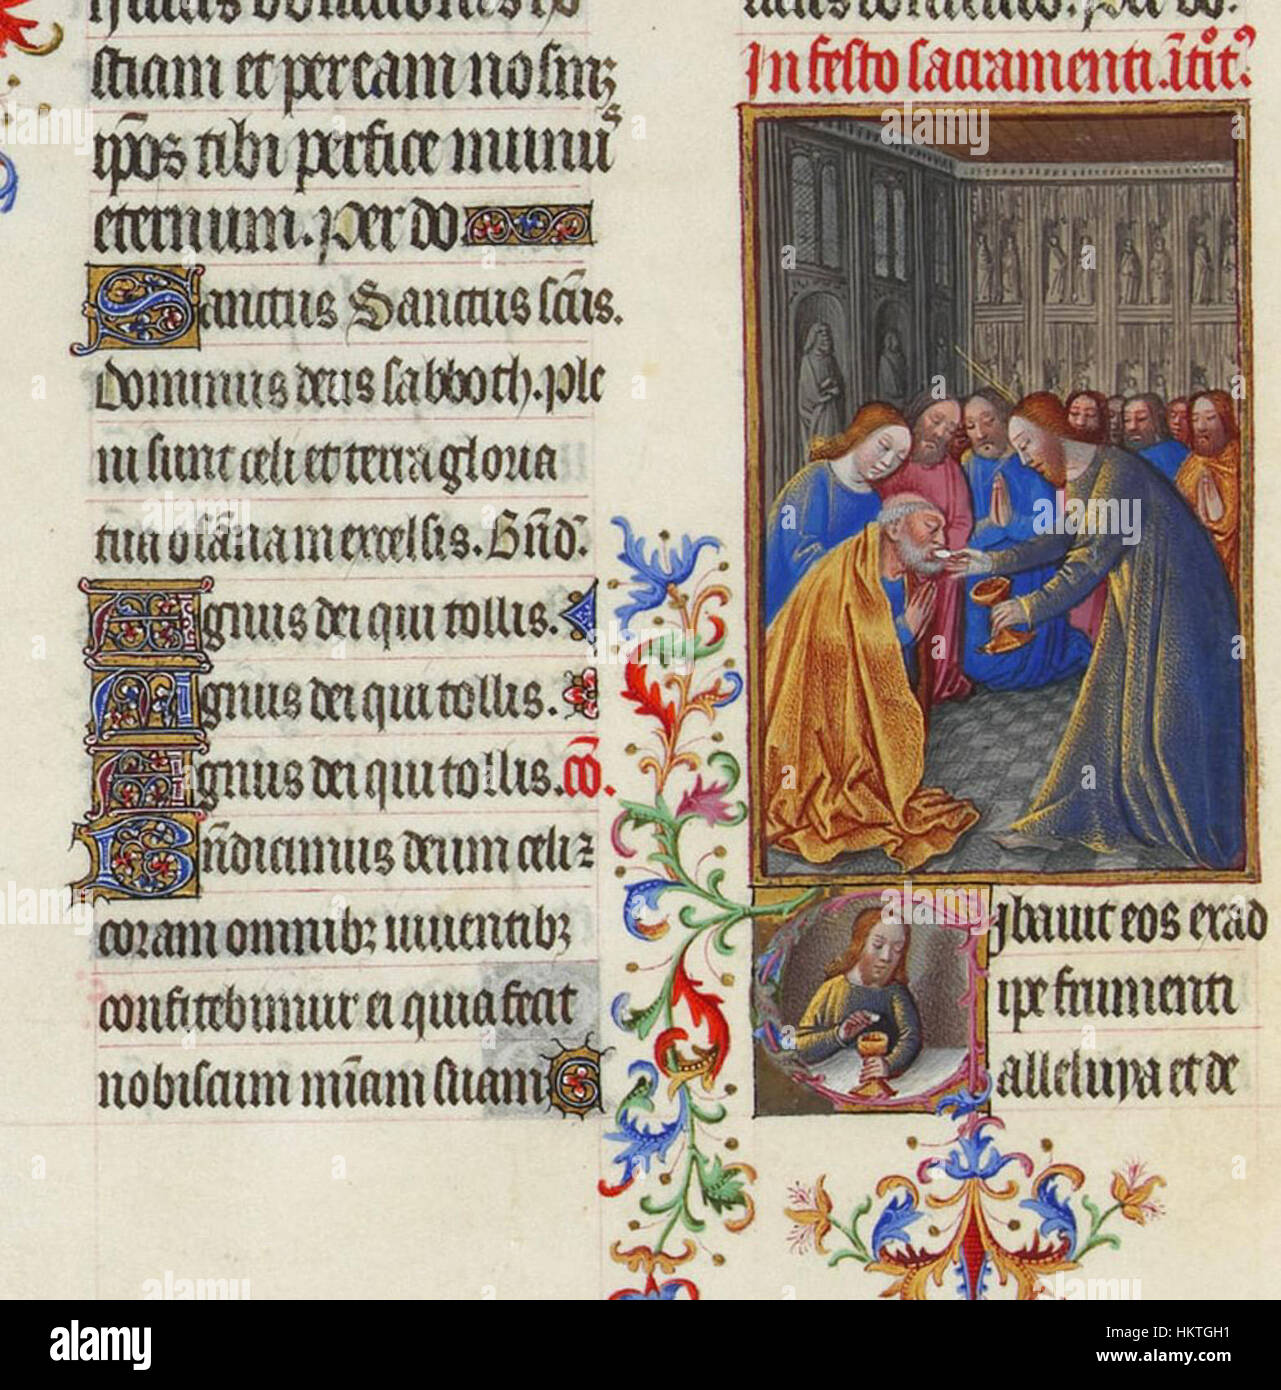 sticam et percam nosmꝫ
ip̄os tibi perfice munuˢ
eternum. Per do
Sanctus Sanctus sc̄us.
Dominus deus sabboth. ple
ni sunt celi et terra gloria
tua osāna in excelsis. Bn̄d̄.
Agnus dei qui tollis.
Agnus dei qui tollis.
Agnus dei qui tollis. cō.
Bn̄dicimus deum celi ꝛ
coram omnibꝫ uiuentibꝫ
confitebimur ei quia fecit
nobiscum mīam suam
In festo sacramenti. ītroitꝰ
Cibauit eos ex ad
ipe frumenti
alleluya et de
alamy
Image ID: HKTGH1
www.alamy.com